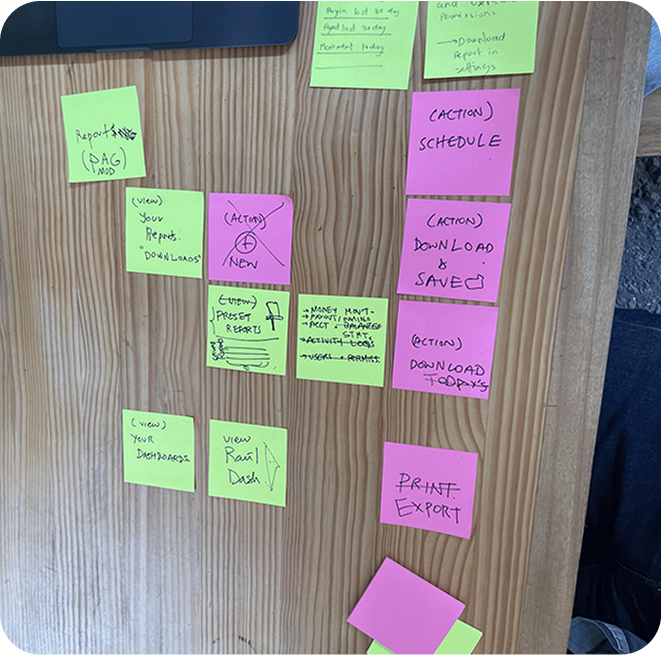 Payin last 30 day
last 30 day
Movement today
Permissions
→ Download
Report in
settings
Report
(PAG)
MOD
(ACTION)
SCHEDULE
(VIEW)
Your
Reports.
"DOWNLOADS"
(ACTION)
+
NEW
(ACTION)
DOWNLOAD
&
SAVE
(VIEW)
PRESET
REPORTS
→ MONEY MVMT-
→ PAYOUT/
→ ACCT. BALANCES
STMT.
→ ACTIVITY LOGS
→ USERS + PERMISS
(ACTION)
DOWNLOAD
TODAY'S
(VIEW)
YOUR
DASHBOARDS
VIEW
Rail
Dash
PRINT
EXPORT